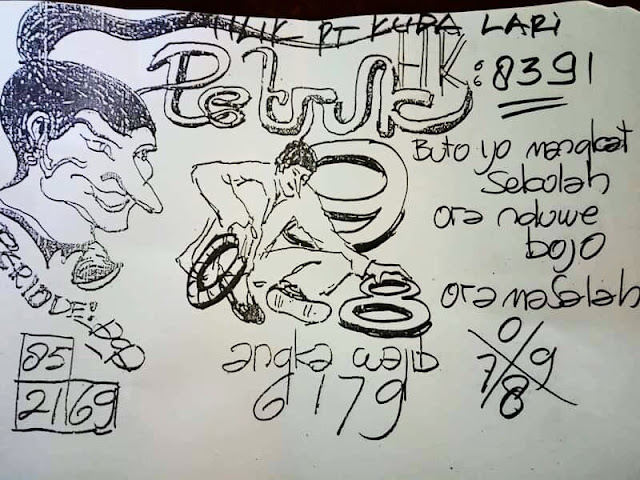 MILIK PT KUDA LARI
Petruk HK: 8391
Buto yo mangkat
sekolah
ora nduwe
bojo
ora masalah
9
8
85
21 69
angka wajib
6179
0
7 9
8